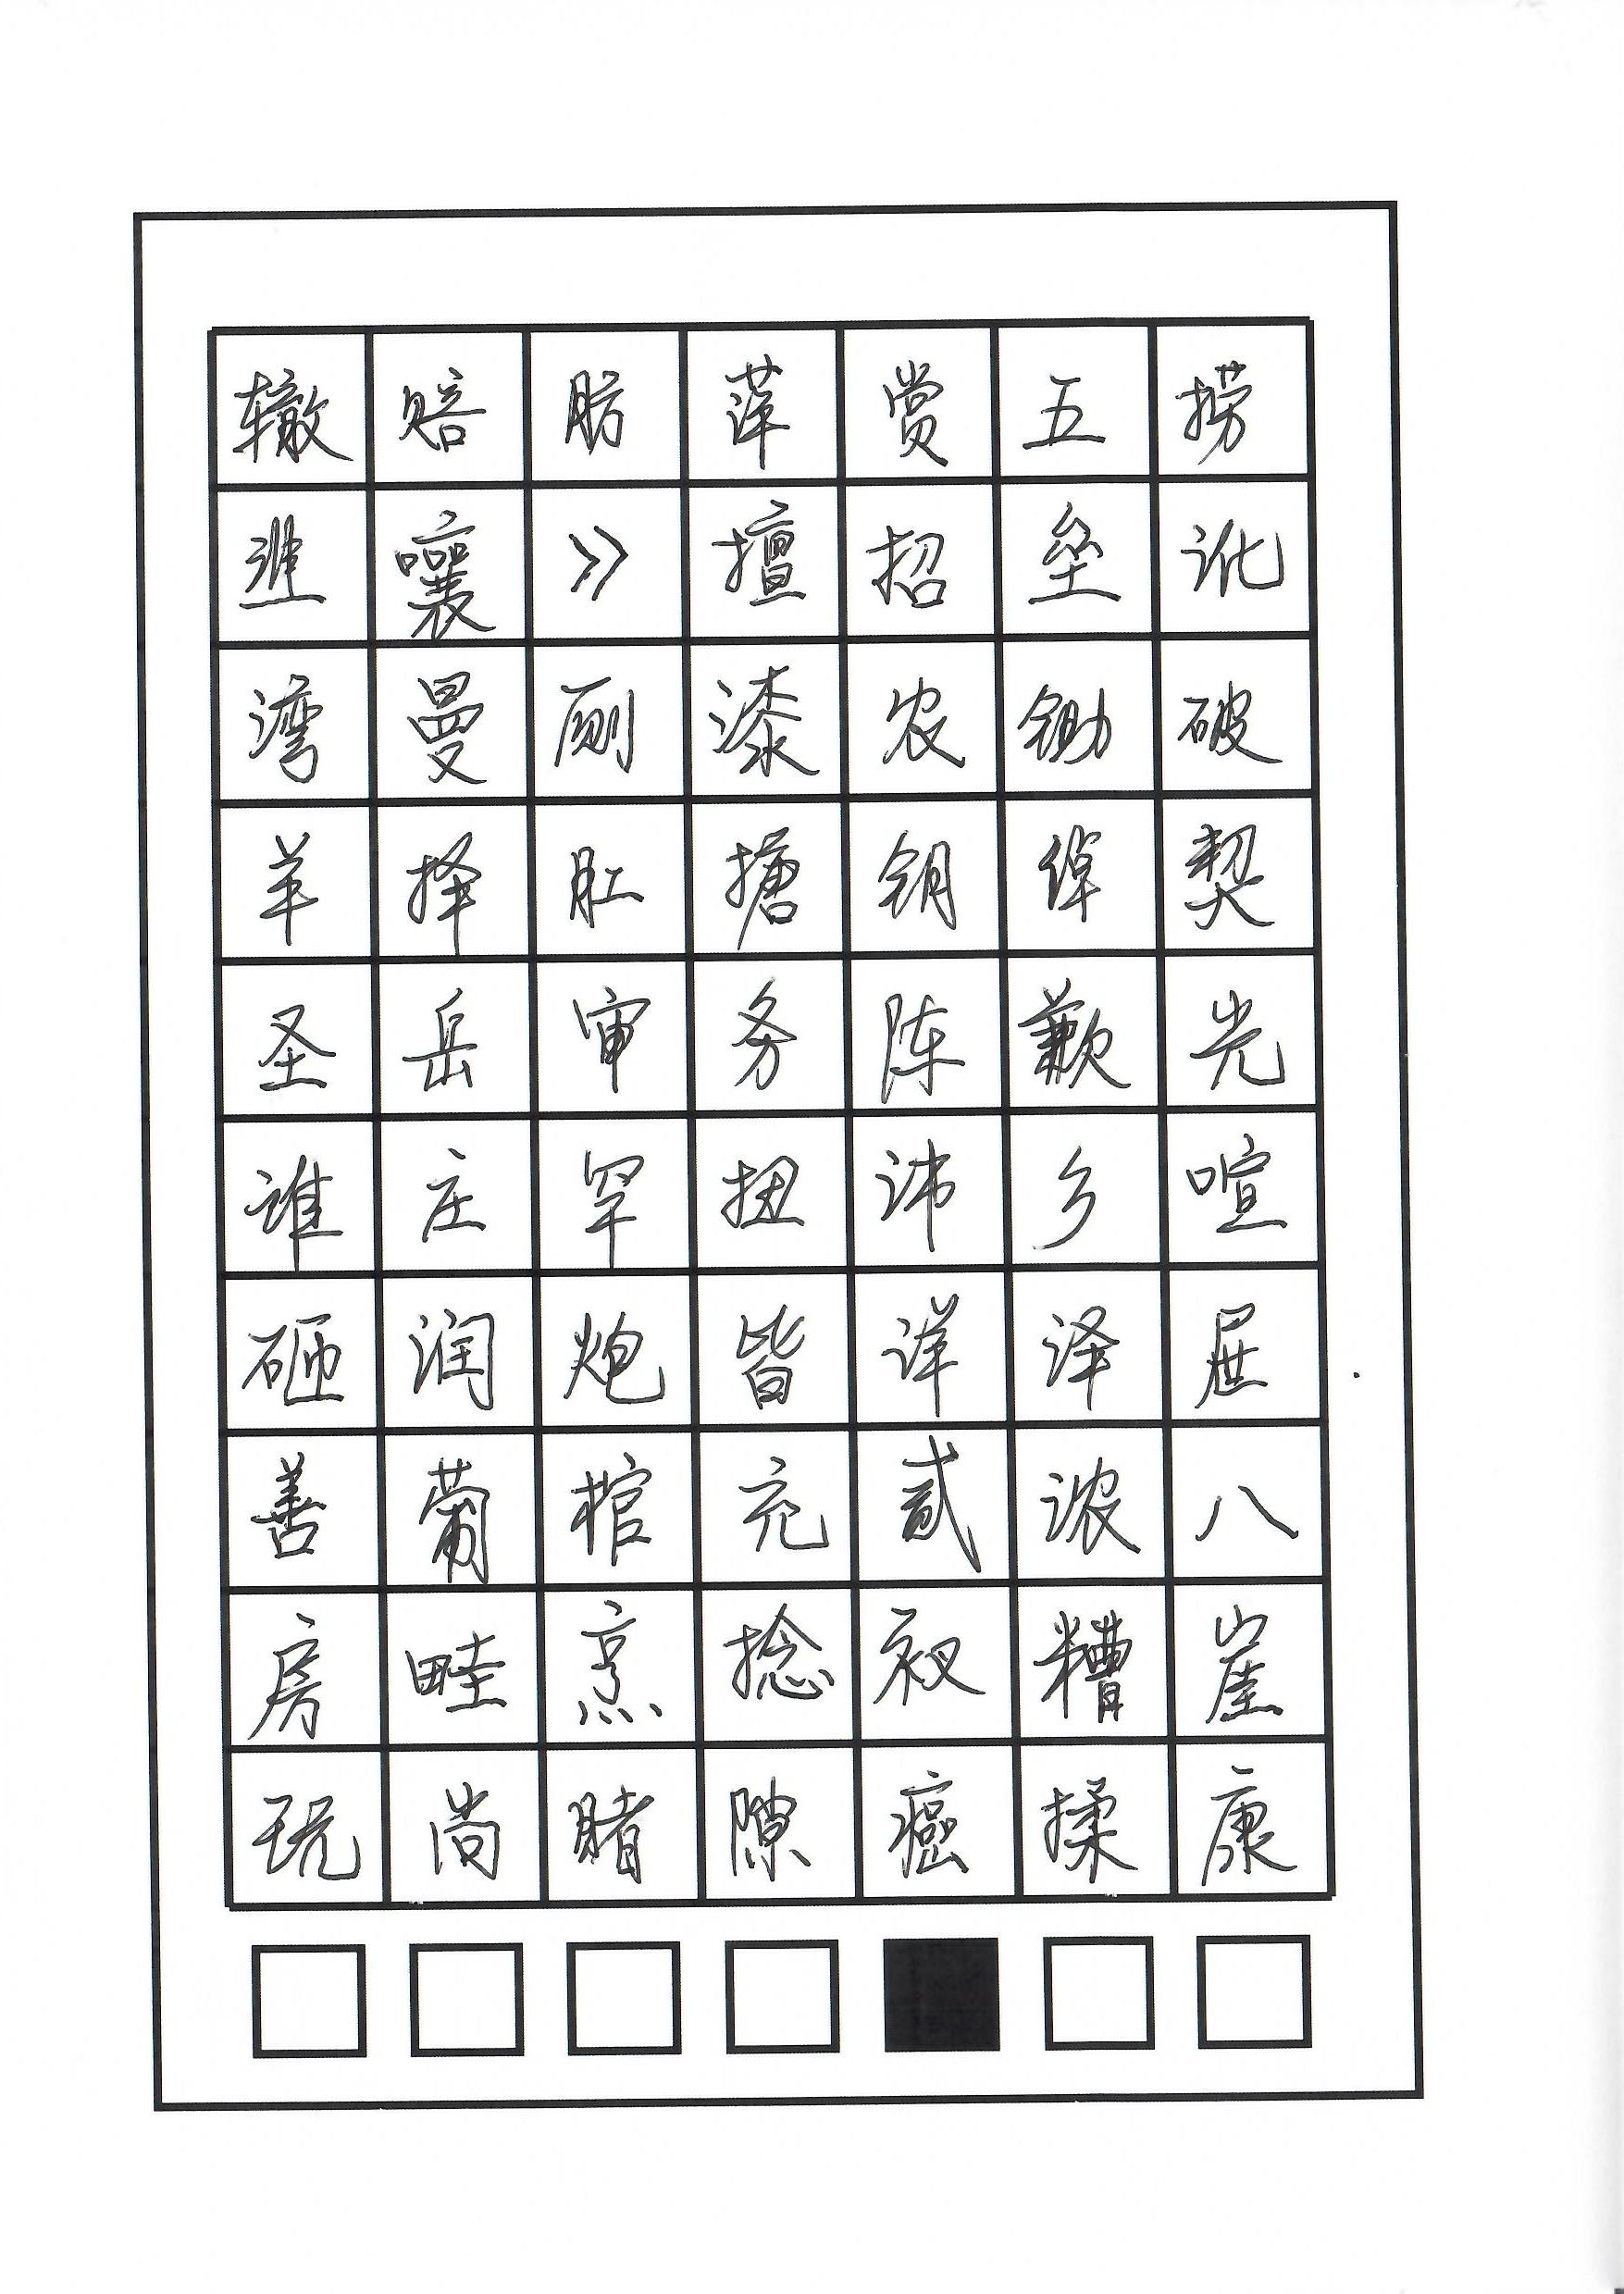 辙赔肪萍赏五捞
进嚷》擅招垒讹
湾曼厕漆农锄破
羊择肛搪钥绰契
圣岳审务陈歉光
谁庄罕扭讳乡喧
砸润炮皆详泽屉
善葡棺充贰浓八
房畦烹捻衩糟崖
玩尚睹隙癌揉康